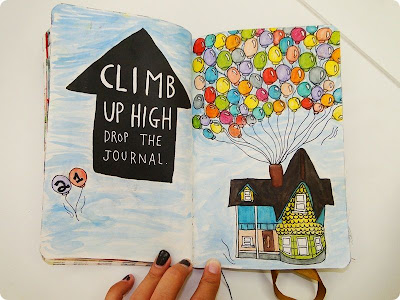 CLIMB
UP HIGH
DROP THE
JOURNAL.
21